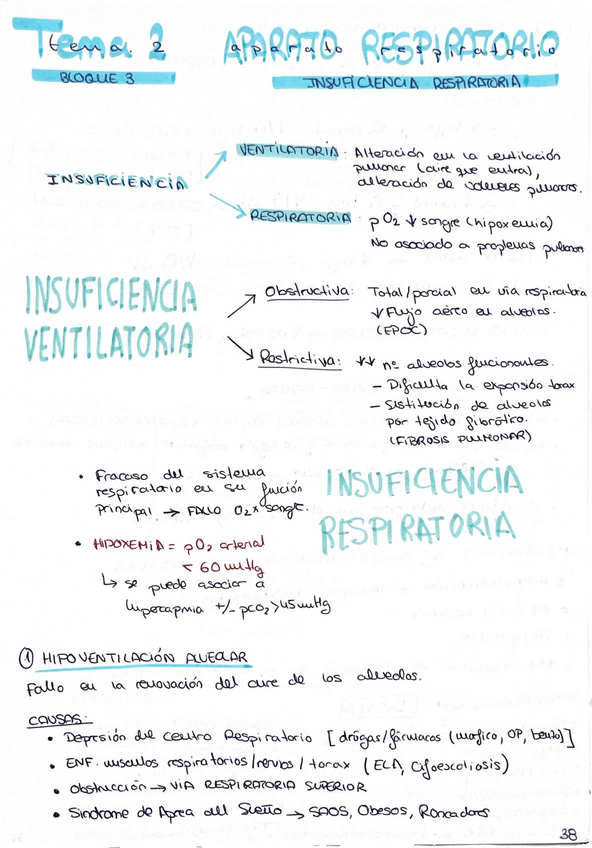 Tema. 2 aparato respiratorio
BLOQUE 3
INSUFICIENCIA RESPIRATORIA
INSUFICIENCIA
VENTILATORIA: Alteración en la ventilación
pulmonar (aire que entra),
alteración de volúmenes pulmones.
RESPIRATORIA: pO2 ↓ sangre (hipoxemia)
No asociado a problemas pulmon
INSUFICIENCIA
VENTILATORIA
Obstructiva: Total/parcial en vía respiratoria
↓ Flujo aéreo en alveolos.
(EPOC)
Restrictiva: ↓↓ nº alveolos funcionantes.
- Dificulta la expansión torax
- Sustitución de alveolos
por tejido fibrótico.
(FIBROSIS PULMONAR)
• Fracaso del sistema
respiratorio en su función
principal → FALLO O2 x sangre.
INSUFICIENCIA
RESPIRATORIA
• HIPOXEMIA = pO2 arterial
< 60 mmHg
↳ se puede asociar a
hipercapnia +/- pCO2 > 45 mmHg
① HIPOVENTILACIÓN ALVEOLAR
Fallo en la renovación del aire de los alveolos.
CAUSAS:
• Depresión del Centro Respiratorio [drogas/fármacos (morfico, OP, benzo)]
• ENF. musculos respiratorios/nervios/torax (ELA, cifoescoliosis)
• Obstrucción → VIA RESPIRATORIA SUPERIOR
• Sindrome de Apnea del Sueño → SAOS, Obesos, Roncadores
38